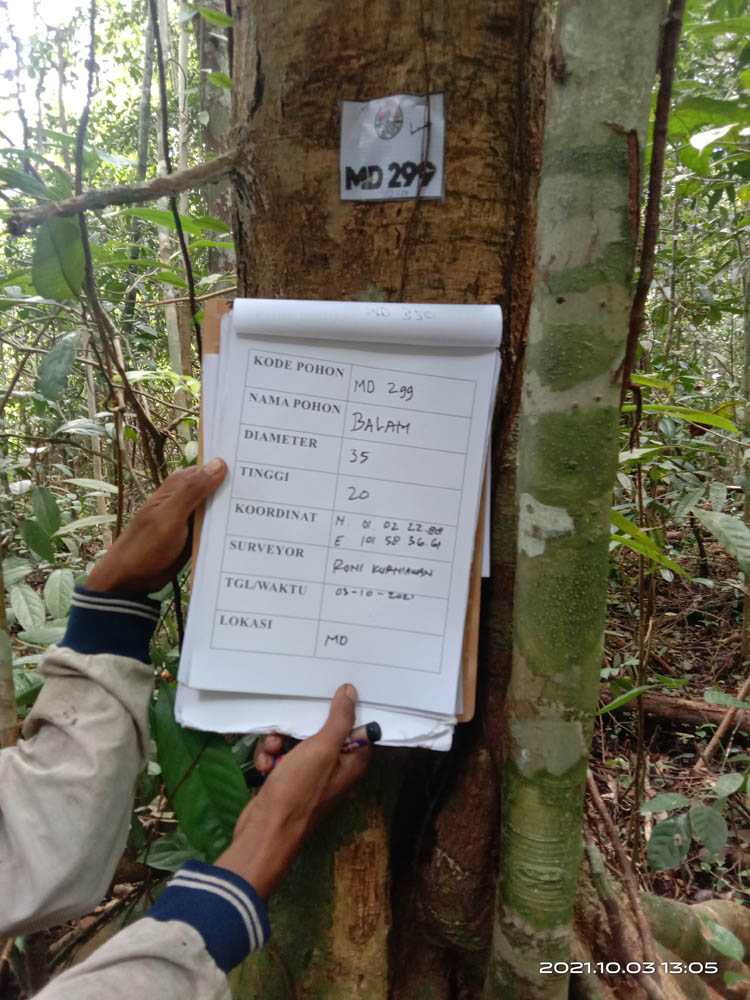 MD 299
KODE POHON MD 299
NAMA POHON BALAM
DIAMETER 35
TINGGI 20
KOORDINAT N. 01 02 22.88
E 101 58 36.61
SURVEYOR RONI KURNIAWAN
TGL/WAKTU 03-10-2021
LOKASI MD
2021.10.03 13:05